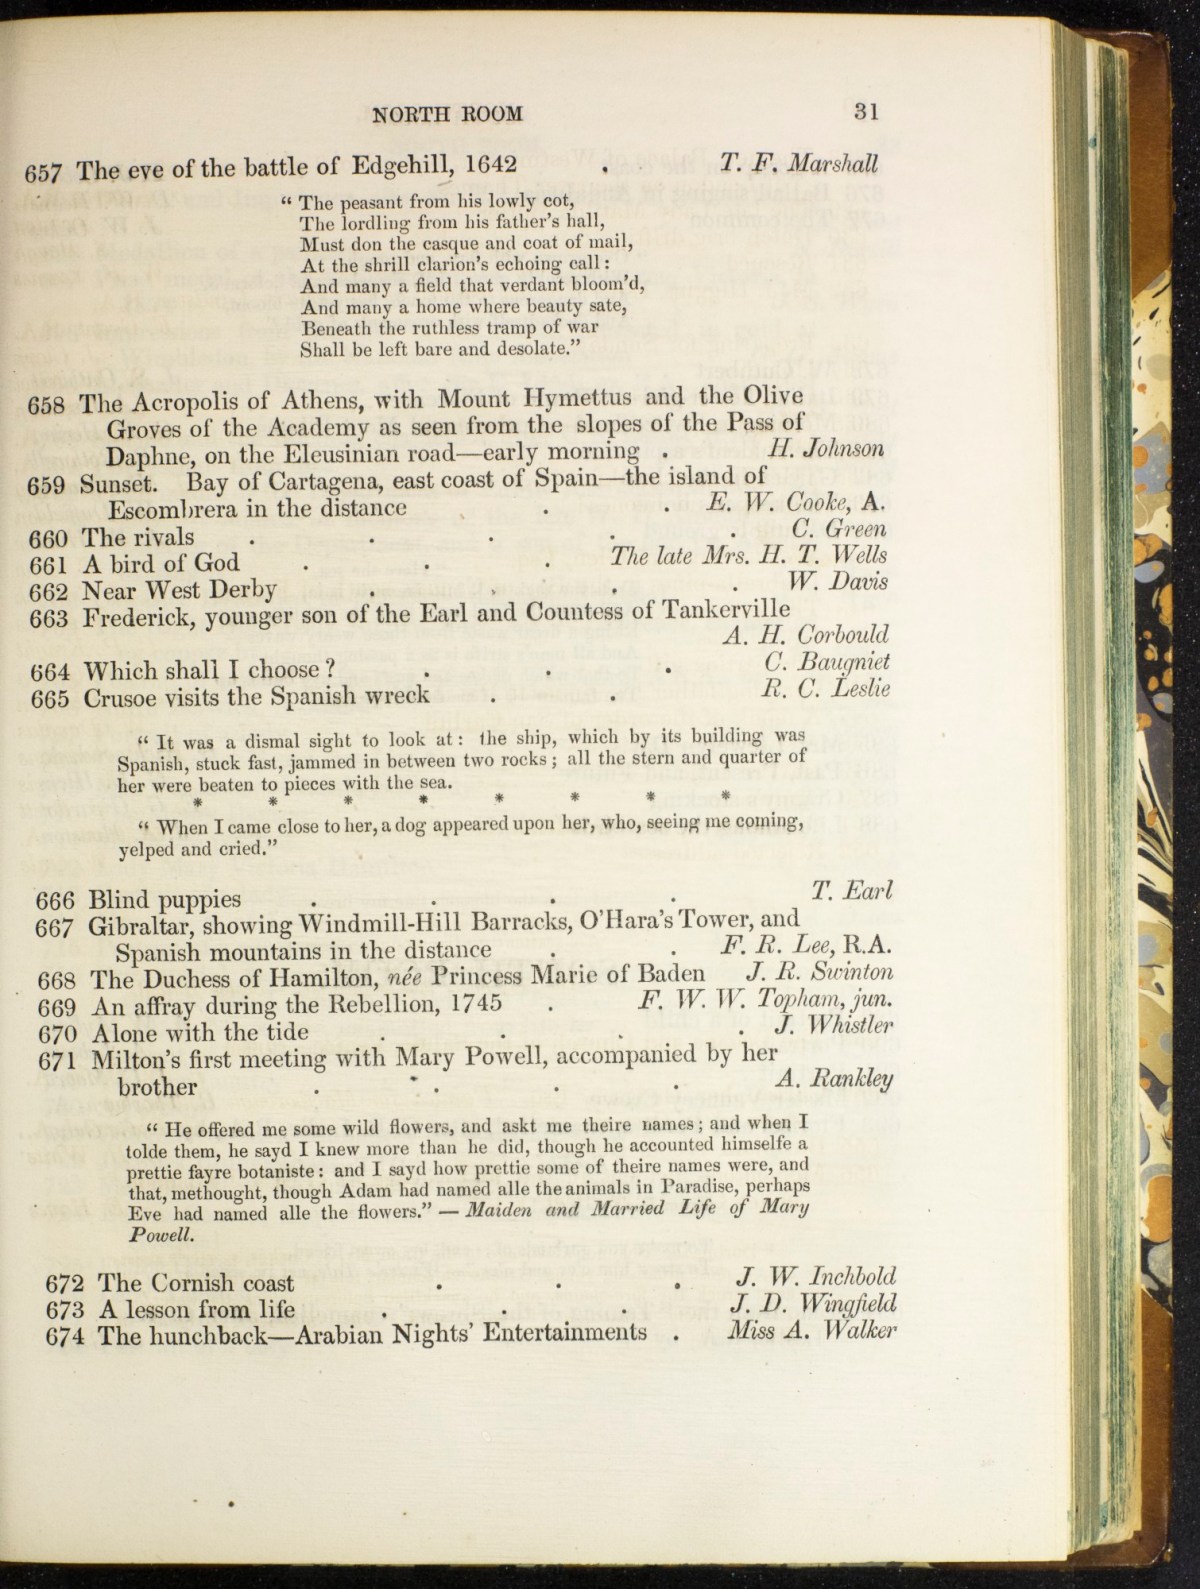 NORTH ROOM 31
657 The eve of the battle of Edgehill, 1642 . T. F. Marshall
“ The peasant from his lowly cot,
The lordling from his father’s hall,
Must don the casque and coat of mail,
At the shrill clarion’s echoing call :
And many a field that verdant bloom’d,
And many a home where beauty sate,
Beneath the ruthless tramp of war
Shall be left bare and desolate.”
658 The Acropolis of Athens, with Mount Hymettus and the Olive
Groves of the Academy as seen from the slopes of the Pass of
Daphne, on the Eleusinian road—early morning . H. Johnson
659 Sunset. Bay of Cartagena, east coast of Spain—the island of
Escombrera in the distance . . E. W. Cooke, A.
660 The rivals . . . . . C. Green
661 A bird of God . . . The late Mrs. H. T. Wells
662 Near West Derby . . . . W. Davis
663 Frederick, younger son of the Earl and Countess of Tankerville
A. H. Corbould
664 Which shall I choose ? . . . C. Baugniet
665 Crusoe visits the Spanish wreck . . R. C. Leslie
“ It was a dismal sight to look at : the ship, which by its building was
Spanish, stuck fast, jammed in between two rocks ; all the stern and quarter of
her were beaten to pieces with the sea.
* * * * * * * *
“ When I came close to her, a dog appeared upon her, who, seeing me coming,
yelped and cried.”
666 Blind puppies . . . . T. Earl
667 Gibraltar, showing Windmill-Hill Barracks, O’Hara’s Tower, and
Spanish mountains in the distance . . F. R. Lee, R.A.
668 The Duchess of Hamilton, née Princess Marie of Baden J. R. Swinton
669 An affray during the Rebellion, 1745 . F. W. W. Topham, jun.
670 Alone with the tide . . . . J. Whistler
671 Milton’s first meeting with Mary Powell, accompanied by her
brother . . . . A. Rankley
“ He offered me some wild flowers, and askt me theire names ; and when I
tolde them, he sayd I knew more than he did, though he accounted himselfe a
prettie fayre botaniste : and I sayd how prettie some of theire names were, and
that, methought, though Adam had named alle the animals in Paradise, perhaps
Eve had named alle the flowers.” — Maiden and Married Life of Mary
Powell.
672 The Cornish coast . . . J. W. Inchbold
673 A lesson from life . . . J. D. Wingfield
674 The hunchback—Arabian Nights’ Entertainments . Miss A. Walker